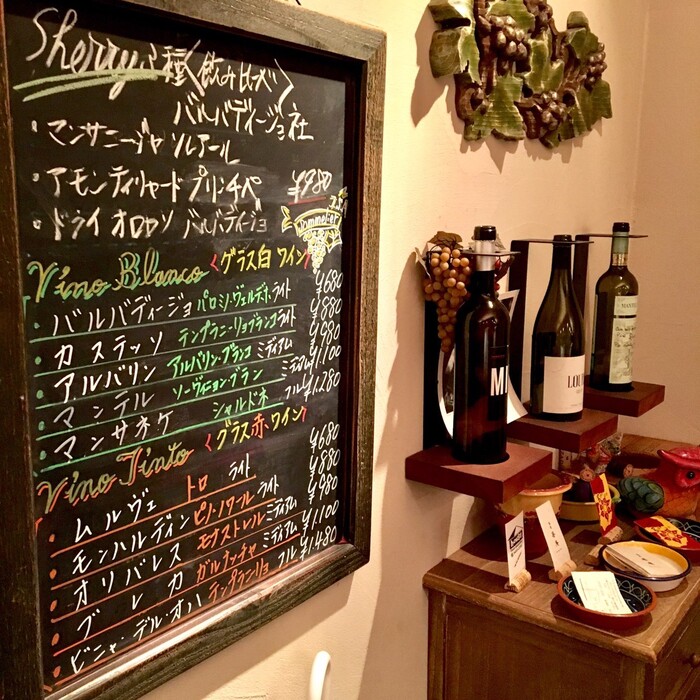 Sherry 3種〈飲み比べ〉
バルバディージョ社
・マンサニージャ ソレアール
・アモンティリャード プリンチペ ¥980
・ドライ オロロソ バルバディージョ
Vino Blanco 〈グラス白ワイン〉
・バルバディージョ パロミノ・ヴェルデホ ライト ¥680
・カステッソ テンプラニーリョブランコ ライト ¥880
・アルバリン アルバリン・ブランコ ミディアム ¥980
・マンテル ソーヴィニョン・ブラン ミディアム ¥1,100
・マンサネケ シャルドネ フル ¥1,280
Vino Tinto 〈グラス赤ワイン〉
・ムルヴェ トロ ライト ¥680
・モンハルディン ピノ・ノワール ライト ¥880
・オリバレス モナストレル ミディアム ¥980
・ブレカ ガルナッチャ ミディアム ¥1,100
・ビニャ・デル・オハ テンプラニーリョ フル ¥1,480